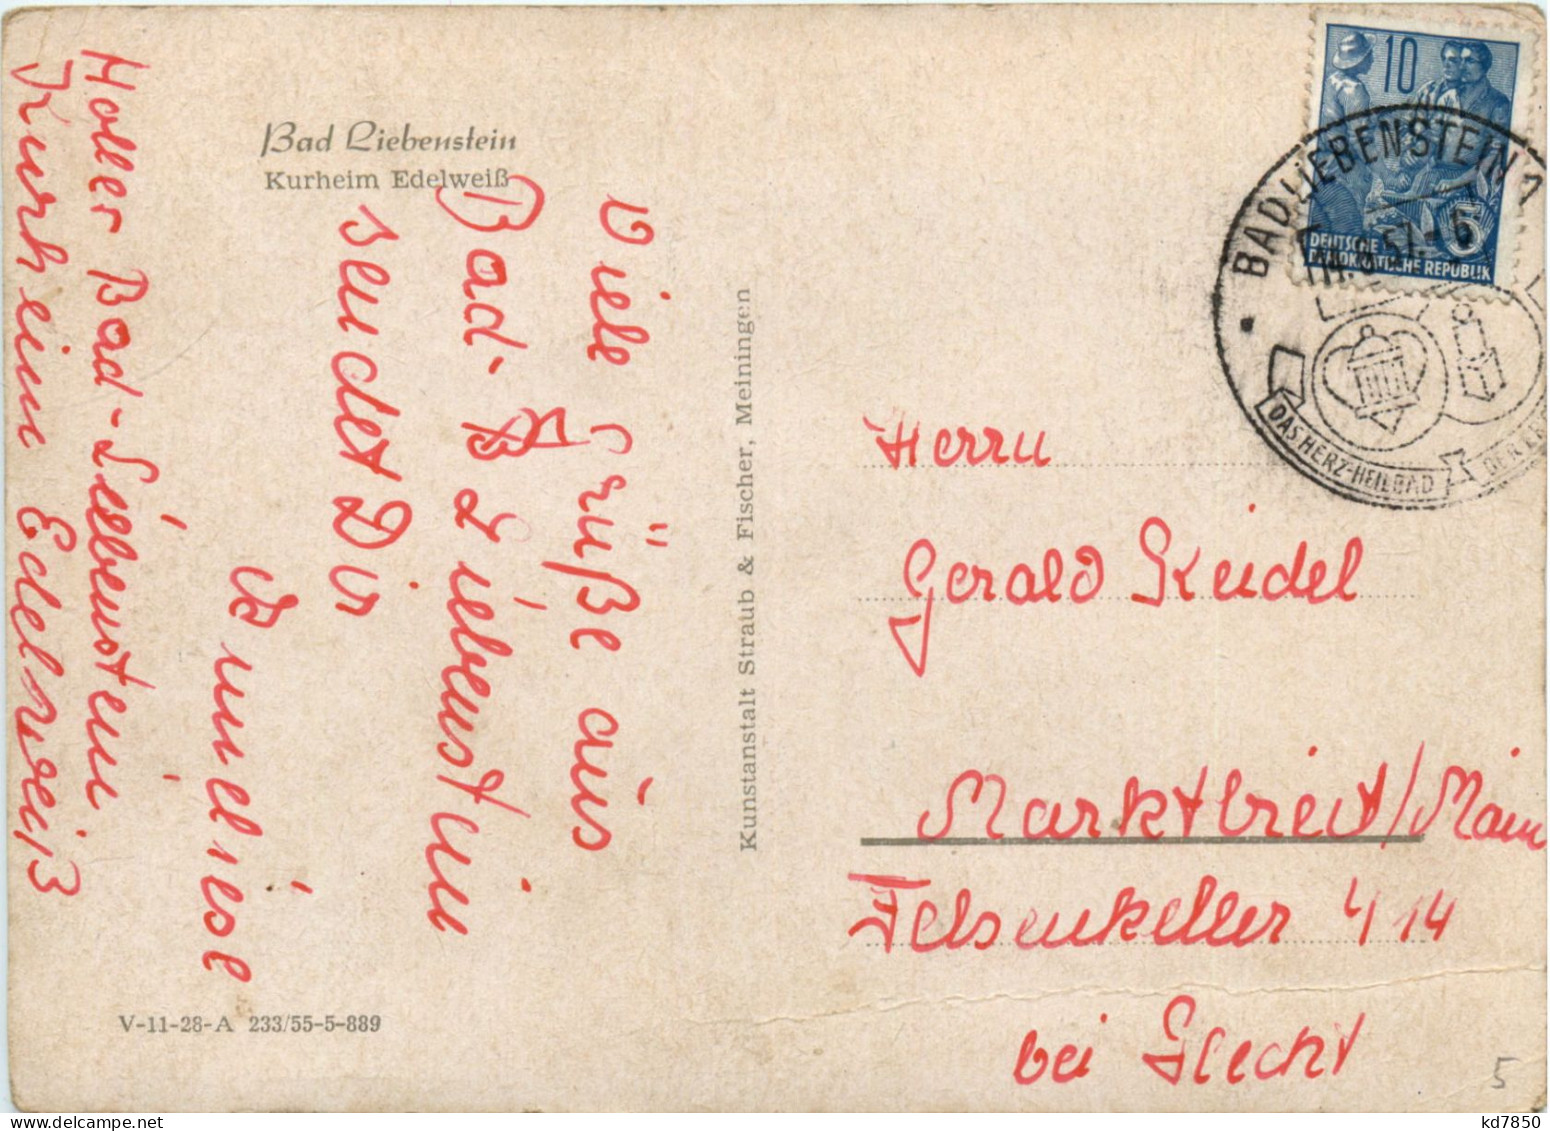 Bad Liebenstein
Kurheim Edelweiß
Viele Grüße aus
Bad-B
Bad Liebenstein
sendet Dir
Anneliese
Holler Bad-Liebenstein
Kurheim Edelweiß
V-11-28-A 233/55-5-889
Kunstanstalt Straub & Fischer, Meiningen
10
DEUTSCHE 5
DEMOKRATISCHE REPUBLIK
BAD LIEBENSTEIN
57.-6
DAS HERZ-HEILBAD
Herrn
Gerald Keidel
Marktbreit/Main
Felsenkeller 414
bei
5
kd7850